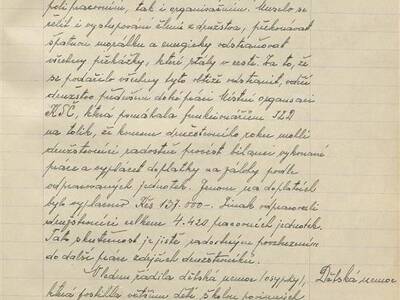 poli pracovním, tak i organisačním. Muselo se
řešit i vystupování členů z družstva, překonávat
špatnou morálku a energicky odstraňovat
všechny překážky, které stály v cestě. Za to, že
se podařilo všechny tyto obtíže odstranit, vděčí
družstvo především dobré práci Místní organisaci
KSČ, která pomáhala funkcionářům JZD
na tolik, že koncem družstevního roku mohli
družstevníci radostně provést bilanci vykonané
práce a vyplácet doplatky na zálohy podle
odpracovaných jednotek. Jenom na doplatcích
bylo vyplaceno Kčs 137.000-. Jinak odpracovali
družstevníci celkem 4.420 pracovních jednotek.
Tato skutečnost je jistě radostným povzbuzením
do další práce zdejších družstevníků.
Vledem řádila dětská nemoc /osypky/, Dětská nemoc
která postihla většinu dětí školou povinných